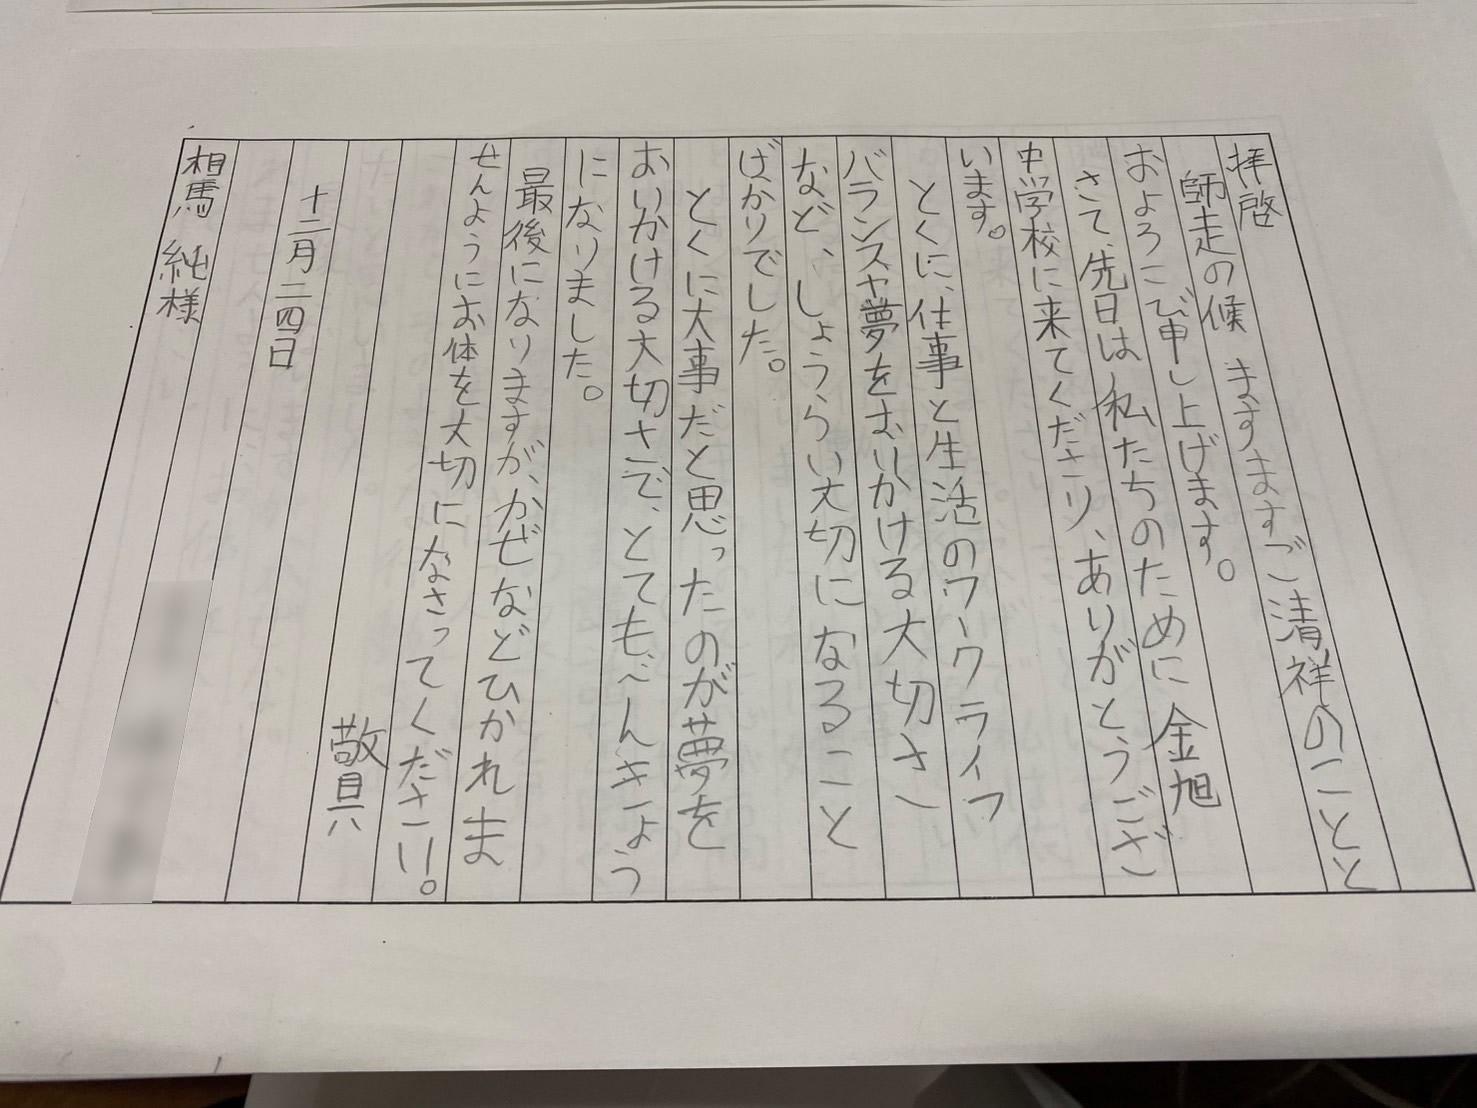 拝啓
師走の候 ますますご清祥のことと
およろこび申し上げます。
さて、先日は私たちのために金旭
中学校に来てくださり、ありがとうござ
います。
とくに、仕事と生活のワークライフ
バランスや夢をおいかける大切さ
など、しょうらい大切になること
ばかりでした。
とくに大事だと思ったのが夢を
おいかける大切さで、とてもべんきょう
になりました。
最後になりますが、かぜなどひかれま
せんようにお体を大切になさってください。
敬具
十二月二四日
相馬 純様